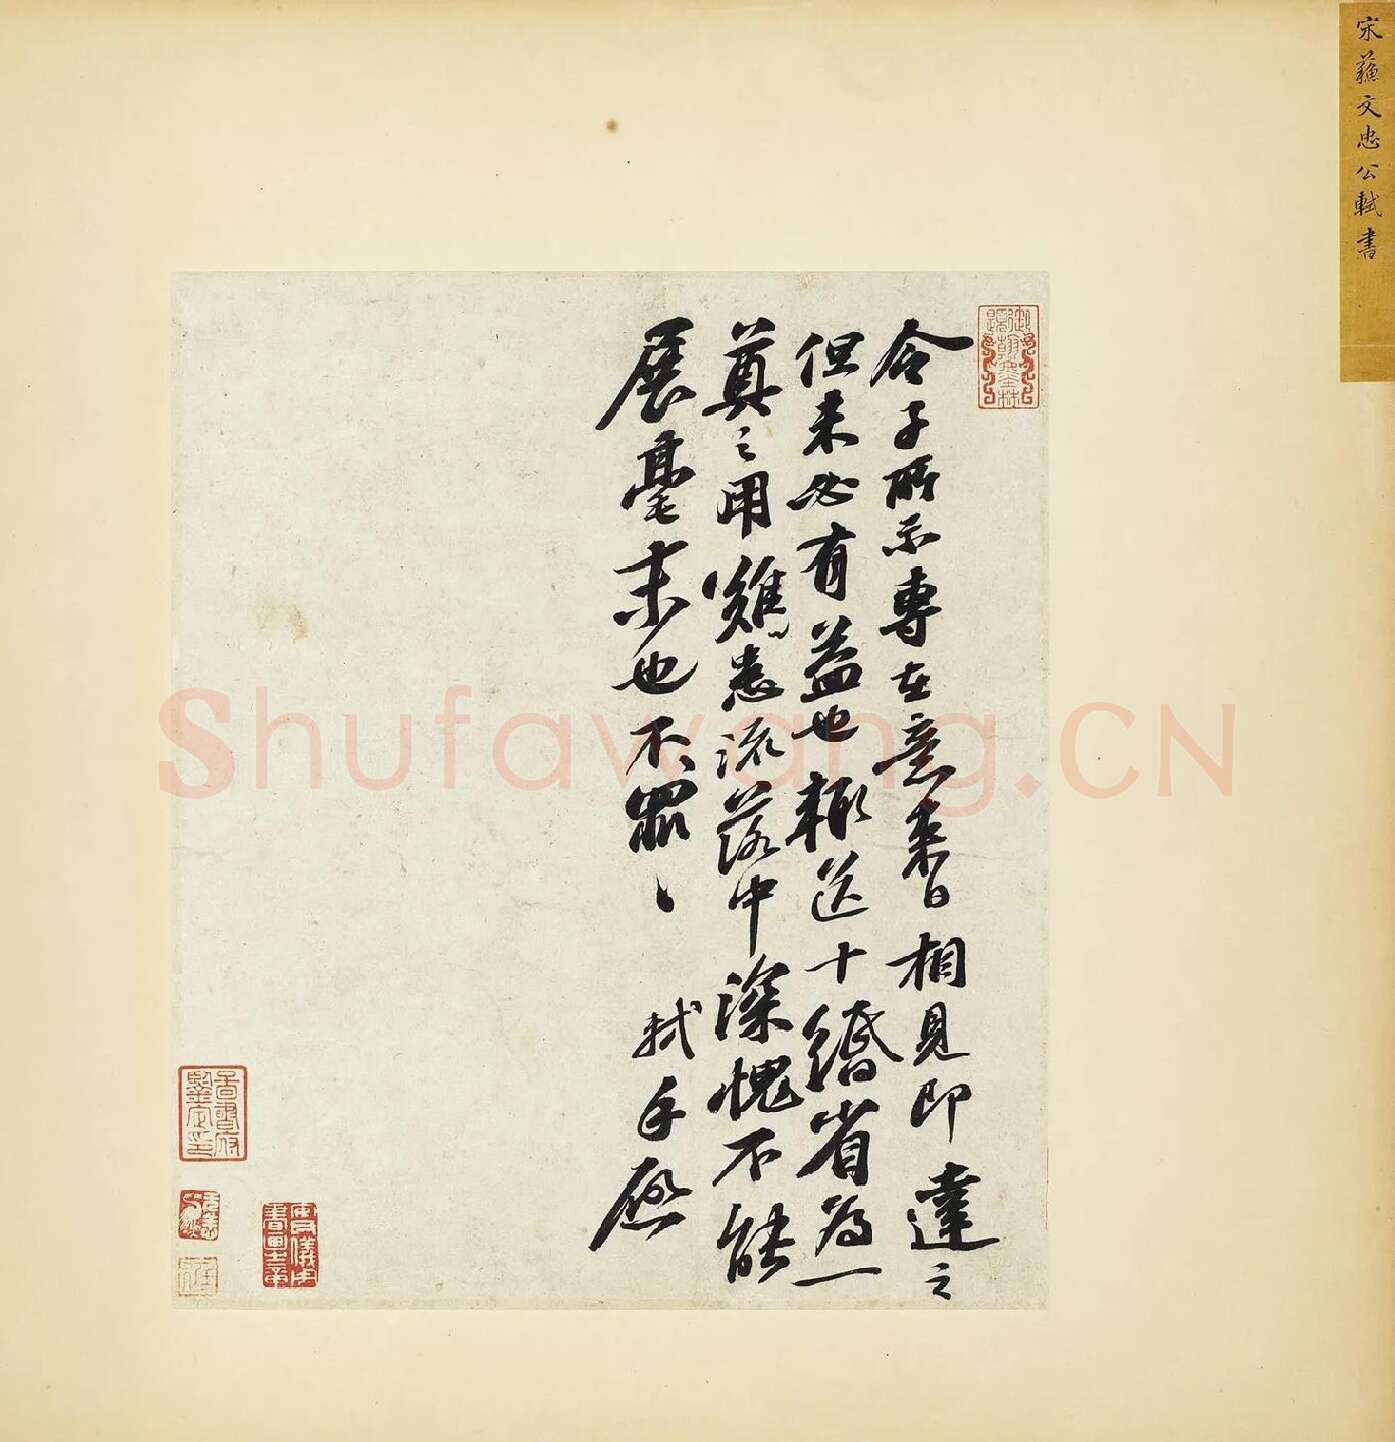 宋蘓文忠公軾書
令子所示專在意来日相見即達之
但未必有益也輙送十緡省為一
奠之用難患流落中深愧不能
展毫末也不罪〻軾手啟
Shufawang.CN